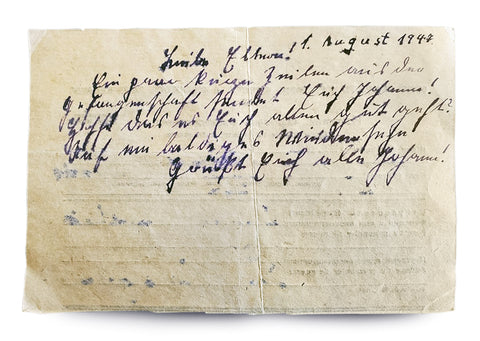 Liebe Eltern! 1. August 1947
Ein paar kurze Zeilen aus der
Gefangenschaft sendet Euch Johann!
Hoffe das es Euch allen gut geht?
Auf ein baldiges Wiedersehn
Grüßt Euch alle Johann!